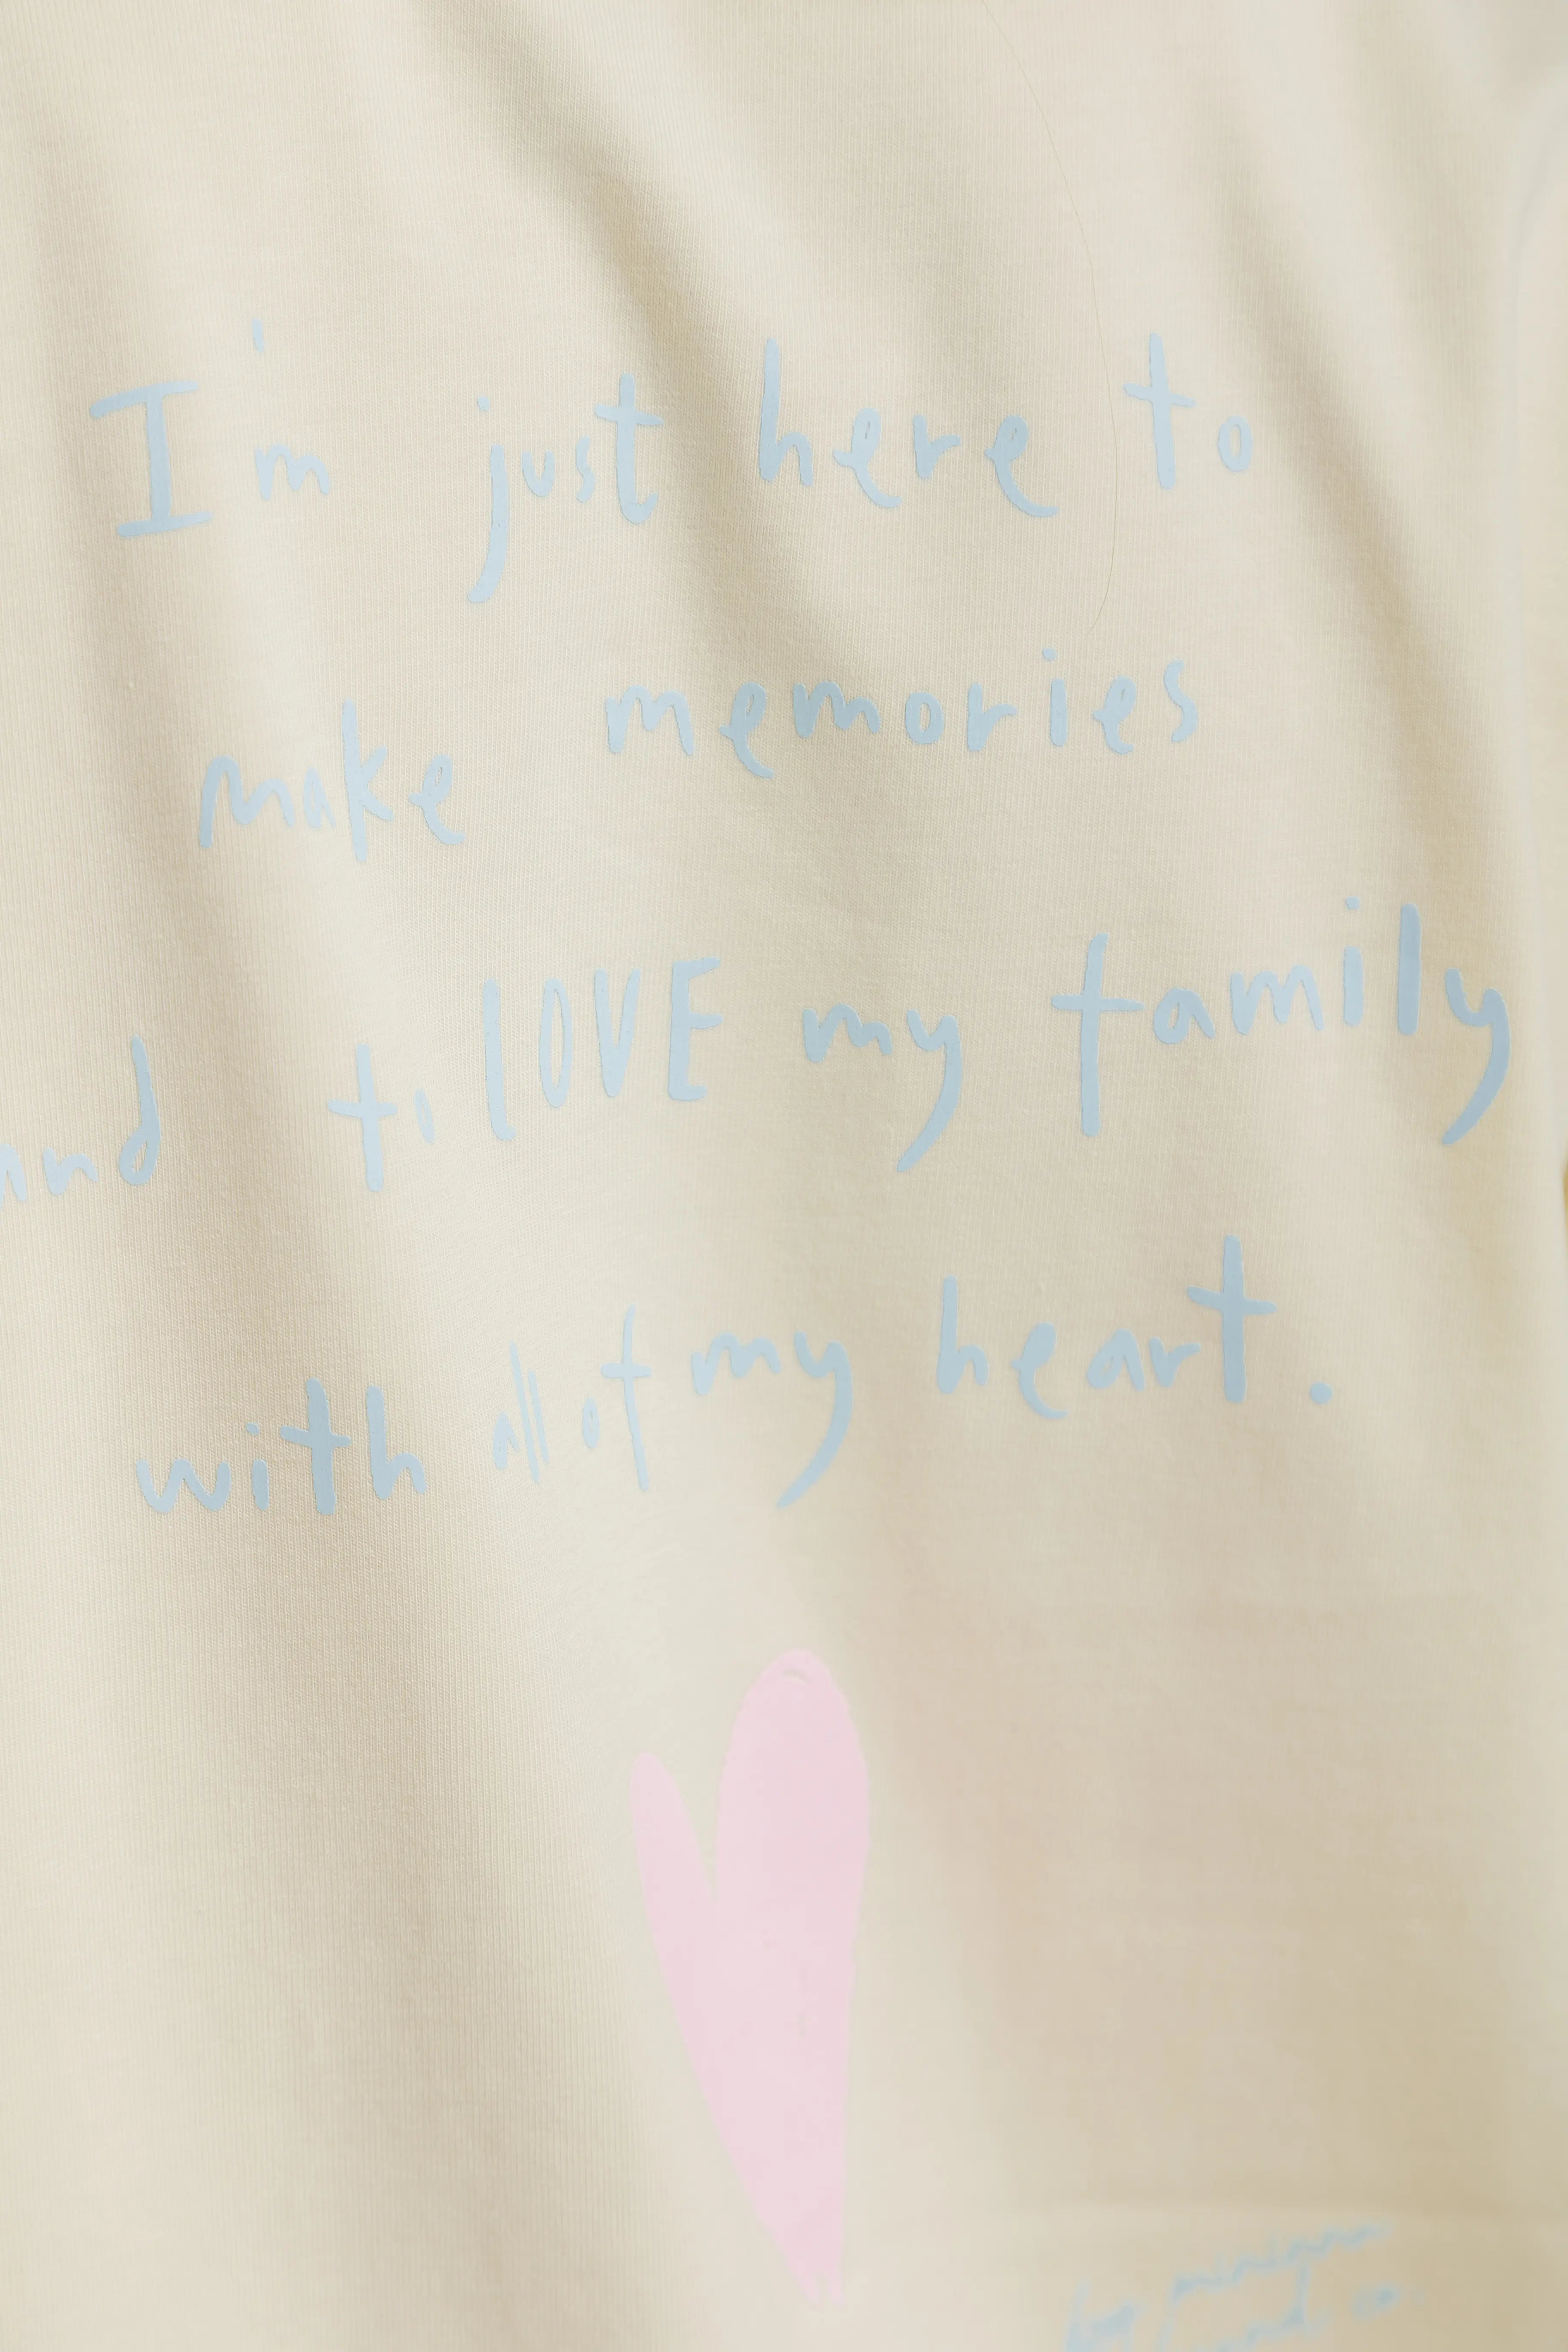 I'm just here to
make memories
and to LOVE my family
with all of my heart.
by